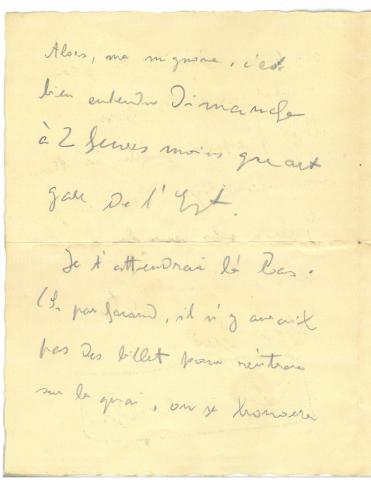 Alors, ma mignonne, c'est
bien entendu Dimanche
à 2 heures moins quart
gare de l'Est.
Je t'attendrai là bas.
(Si par hasard, il n'y aurait
pas des billet pour rentrer
sur le quai, on se trouvera